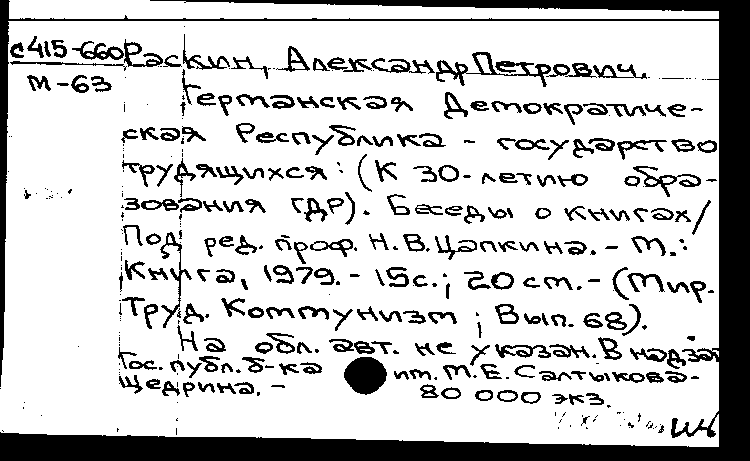 с415-660 Раскин, Александр Петрович.
М-63
Германская Демократиче-
ская Республика - государство
трудящихся: (К 30-летию обра-
зования ГДР). Беседы о книгах/
Под ред. проф. Н.В.Цапкина. - М.:
Книга, 1979. - 15с.; 20 см. - (Мир.
Труд. Коммунизм ; Вып. 68).
На обл. авт. не указан. В надзаг
Гос. публ. б-ка им. М.Е. Салтыкова-
Щедрина. -
80 000 экз.